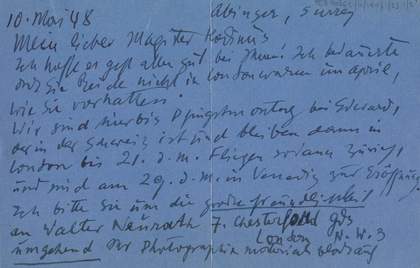 10. Mai 48
Abinger, Surrey
Mein lieber Magister
Ich hoffe es geht alles gut bei Ihnen. Ich bedauerte
dass Sie beide nicht in London waren im April,
wie Sie vorhatten.
Wir sind hier bis Pfingstmontag bei
der in der Schweiz ist und bleiben dann in
London bis 21. d. M. Fliegen sodann Zürich,
und sind am 29. d. M. in Venedig zur Eröffnung
Ich bitte Sie um die große Freundlichkeit
an Walter Neurath 7. Chesterford gds
London N.W.3
umgehend Ihr Photographie material